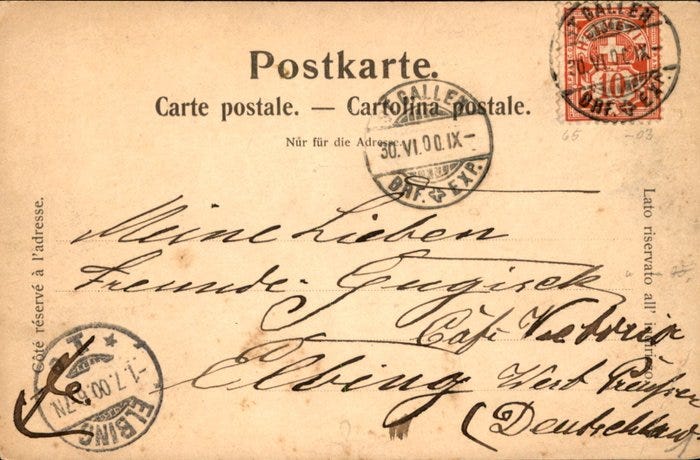 Postkarte.
Carte postale. — Cartolina postale.
Nur für die Adresse.
T GALLEN
30.VI.00.IX–
BRF. EXP.
GALLEN
30.VI.00.IX–
BRF. EXP.
10
65 –03
Côté réservé à l'adresse.
Lato riservato all'
Meine Lieben
Freunde
Café Victoria
Elbing West Preussen
(Deutschland
ELBING
-1.7.00.